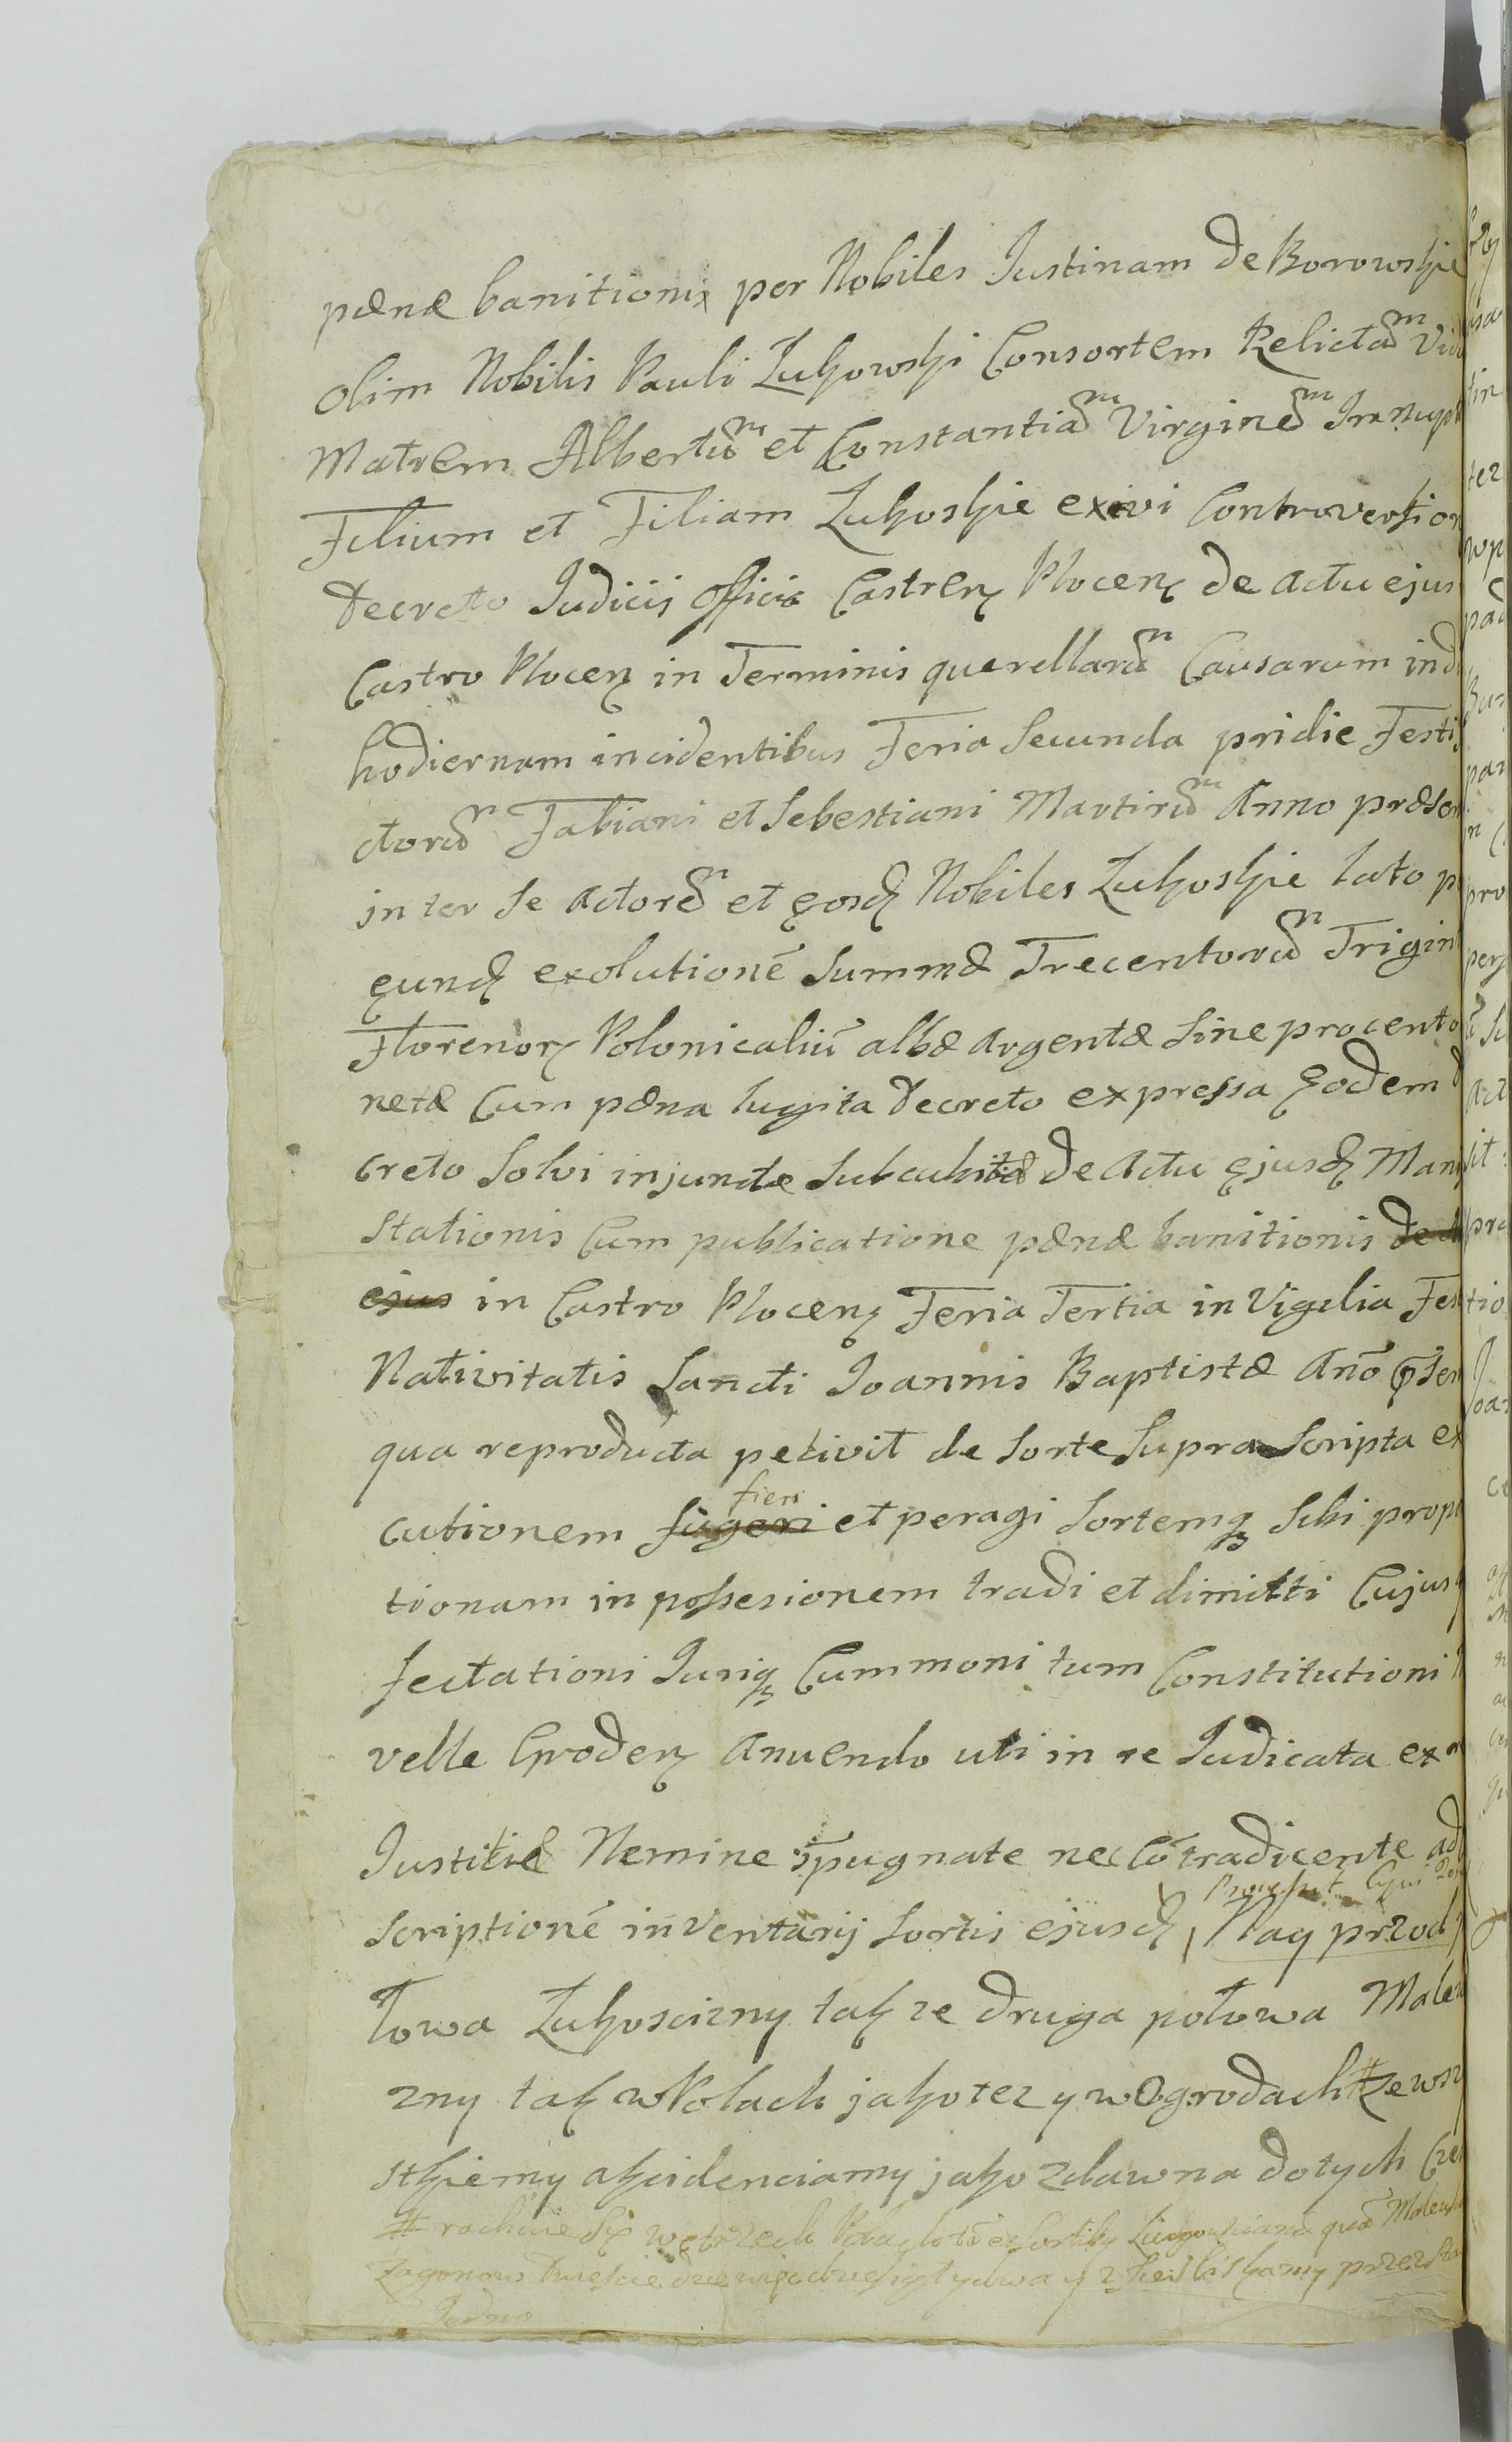 pænæ banitionis per Nobiles Iustinam de Borowskie
Olim Nobilis Pauli Zukowski Consortem Relictam
Matrem Albertum et Constantiam Virginem Innupt
Filium et Filiam Zukoskie exivi Controversion
Decreto Iudicii Officii Castren Plocen de actu ejus
Castro Plocen in Terminis querellarum Causarum ind
hodiernam incidentibus Feria Secunda pridie Festi
ctorum Fabiani et Sebestiani Martirum Anno præsen
inter se actorem et eosd Nobiles Zukoskie lato
eund exolutionē Summæ Trecentorum Trigin
Florenor Polonicaliū albæ argentæ sine procento
netæ Cum pæna lugita Decreto expressa eodem
creto Solvi injunctæ Subcubitæ de Actu ejusd Man
stationis Cum publicatione pænæ banitionis de
ejus in Castro Plocen Feria Tertia in Vigilia Fes
Nativitatis Sancti Ioannis Baptistæ Anō
qua reproducta petivit de Sorte Supra Scripta ex
cutionem fieri et peragi Sortemq Sibi prop
tionam in possesionem tradi et dimitti Cujus
fectationi Iuriq Cummoni tum Constitutioni
velle Groden Anuendo uti in re Iudicata ex
Iustitiæ Nemine īpugnate nec cōtradicente ad
Scriptionē inventarij Sortis ejusd, Nay przod
łowa Zukoscizny tak ze druga połowa Malew
zny tak w Polach jako tez y w Ogrodach # ze wsz
stkiemy akcidenciamy jako zdawna do tych Cza
# rachuie Się we trzech Polach
Zagonow Dwiescie dziewięcdziesiąt y dwa y z przez
Jedno